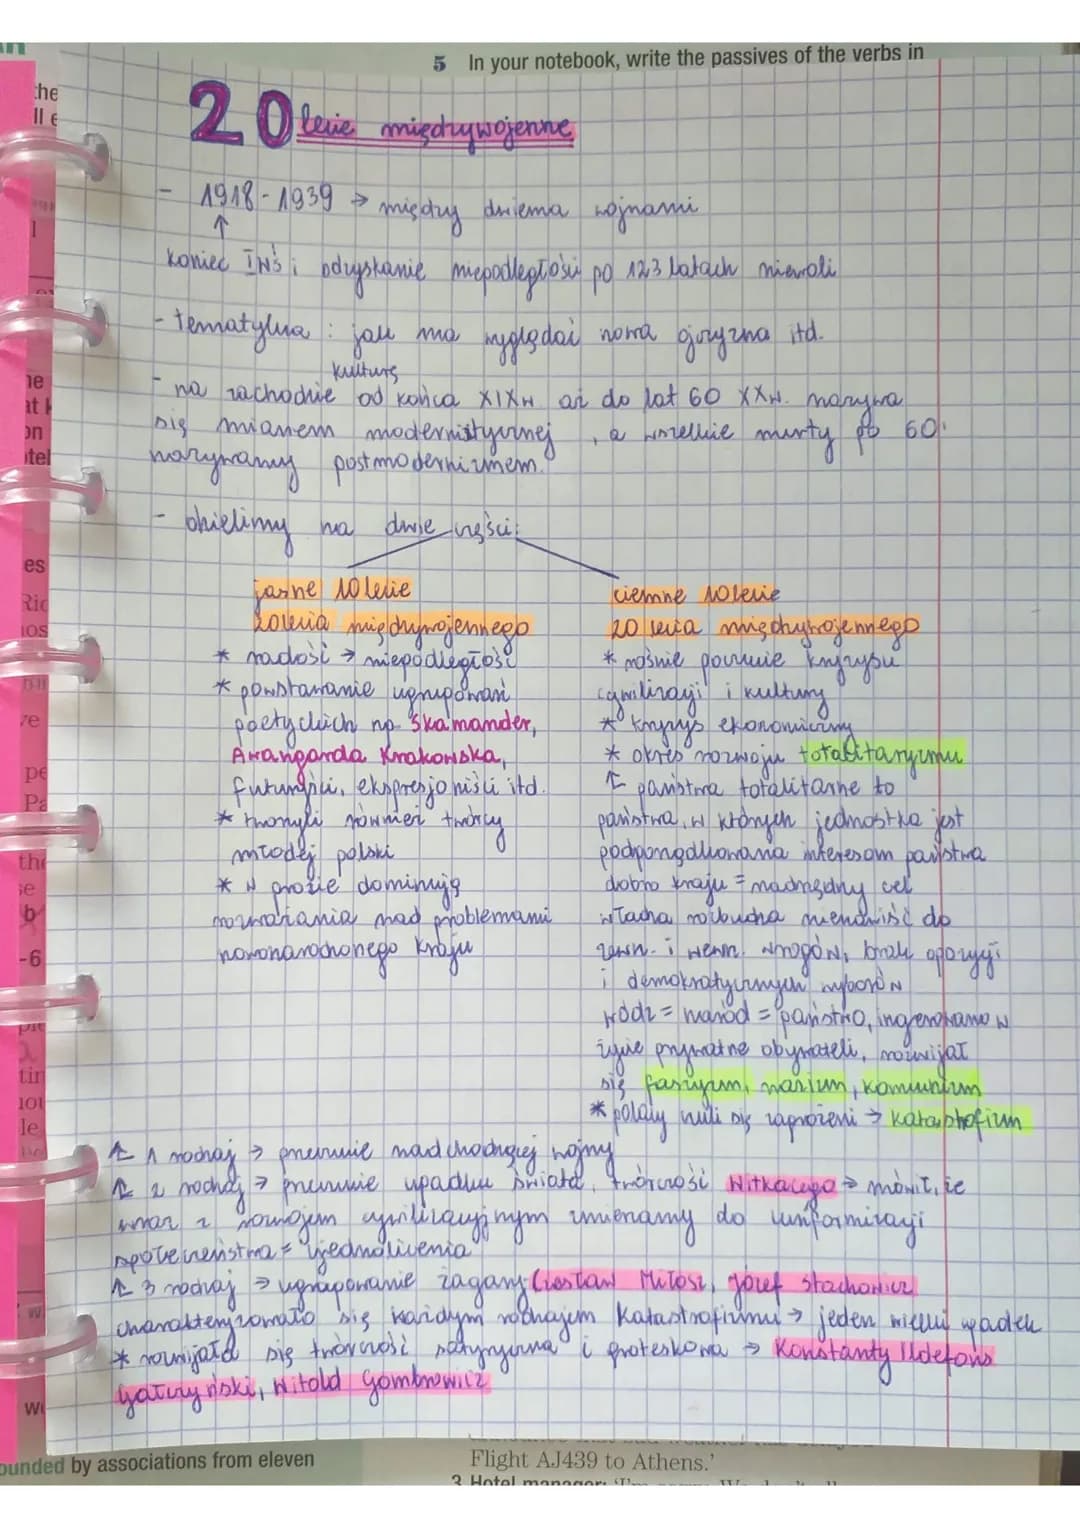 5 In your notebook, write the passives of the verbs in
the
ll e
20 lecie międzywojenne
- 1918-1939 → między dwiema wojnami
↑
koniec IWŚ i odzyskanie niepodległości po 123 latach niewoli
- tematyka : jak ma wyglądać nowa ojczyzna itd.
kulturę
- na zachodzie od końca XIXw aż do lat 60 XXw. nazywa
się mianem modernistycznej, a wszelkie nurty po 60.
nazywamy postmodernizmem.
- dzielimy na dwie części:
jasne 10lecie
20lecia międzywojennego
* radość → niepodległość
* powstawanie ugrupowań
poetyckich np. Skamander,
Awangarda Krakowska,
futuryści, ekspresjoniści itd.
* tworzyli również twórcy
młodej polski
* w prozie dominują
rozważania nad problemami
nowonarodzonego kraju
ciemne 10lecie
20 lecia międzywojennego
* rośnie poczucie kryzysu
cywilizacji i kultury
* kryzys ekonomiczny
* okres rozwoju totalitaryzmu
↑ państwa totalitarne to
państwa, w których jednostka jest
podporządkowana interesom państwa
dobro kraju = nadrzędny cel
władza rozbudza nienawiść do
zewn. i wewn. wrogów, brak opozycji
i demokratycznych wyborów
wódz = naród = państwo, ingerowano w
życie prywatne obywateli, rozwijał
się faszyzm, nazizm, komunizm
* polacy czuli się zagrożeni → katastrofizm
↑ 1 rodzaj → przeczucie nadchodzącej wojny
↑ 2 rodzaj → przeczucie upadku świata, twórczość Witkacego → mówił, że
wraz z rozwojem cywilizacyjnym zmierzamy do uniformizacji
społeczeństwa = ujednolicenia
↑ 3 rodzaj → ugrupowanie żagary: Czesław Miłosz, Józef Stachowicz
charakteryzowało się każdym rodzajem katastrofizmu → jeden wielki upadek
* rozwijała się twórczość satyryczna i groteskowa → Konstanty Ildefons
Gałczyński, Witold Gombrowicz
ounded by associations from eleven
Flight AJ439 to Athens.'
3 Hotel manager: